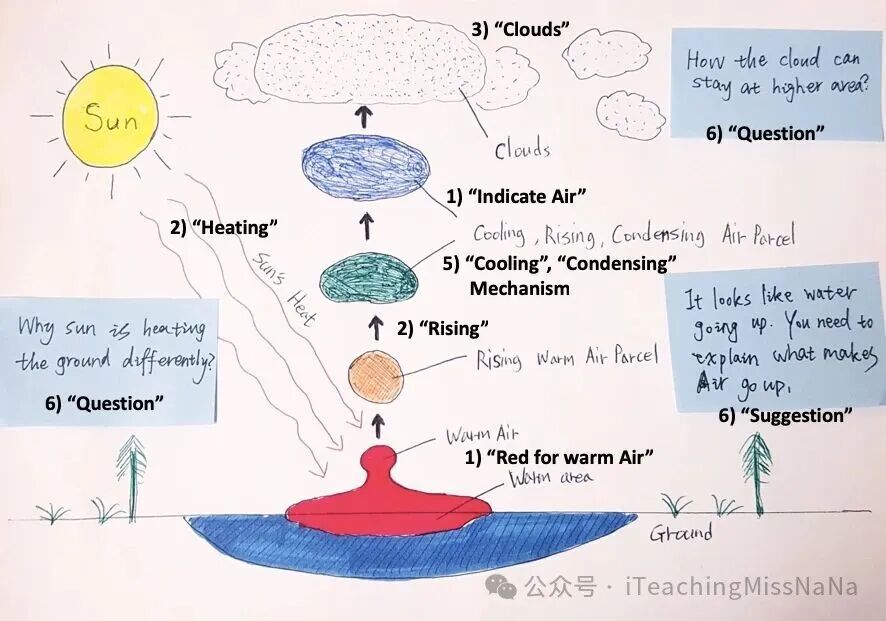 3) “Clouds”
Sun
How the cloud can
stay at higher area?
6) “Question”
Clouds
1) “Indicate Air”
2) “Heating”
Cooling, Rising, Condensing Air Parcel
5) “Cooling”, “Condensing”
Mechanism
Sun's Heat
It looks like water
going up. You need to
explain what makes
Air go up.
6) “Suggestion”
Why sun is heating
the ground differently?
6) “Question”
2) “Rising”
Rising Warm Air Parcel
Warm Air
1) “Red for warm Air”
Warm area
Ground
公众号 · iTeachingMissNaNa